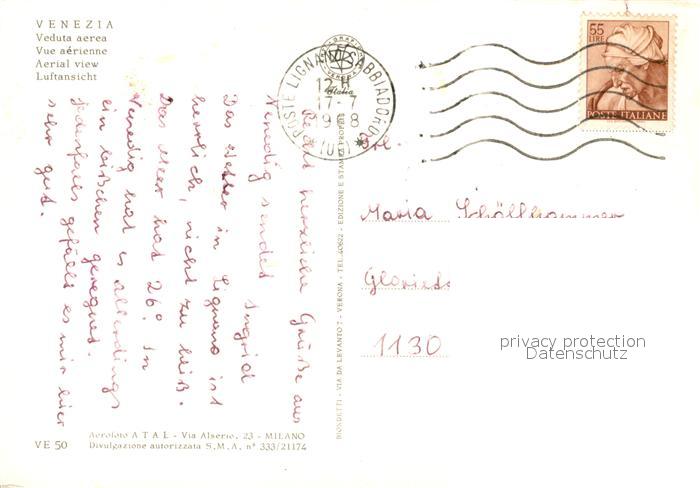 VENEZIA
Veduta aerea
Vue aérienne
Aerial view
Luftansicht
Recht herzliche Grüße aus
Venedig sendet Ingrid
Das Wetter in Lignano ist
herrlich, nicht zu heiß.
Das Meer hat 26°. In
Venedig hat es allerdings
ein bißchen geregnet.
Jedenfalls gefällt es mir hier
sehr gut.
VE 50
Aerofoto ATAL - Via Alserio, 23 - MILANO
Divulgazione autorizzata S.M.A. n° 333/21174
BIONDETTI - VIA DA LEVANTO 7 - VERONA - TEL. 40622 - EDIZIONE E STAMPA PROPRIE
Italia
POSTE LIGNANO SABBIADORO
12-H
17-7
(UD)
55
LIRE
POSTE ITALIANE
Frl.
Maria Schöllhammer
1130
privacy protection
Datenschutz